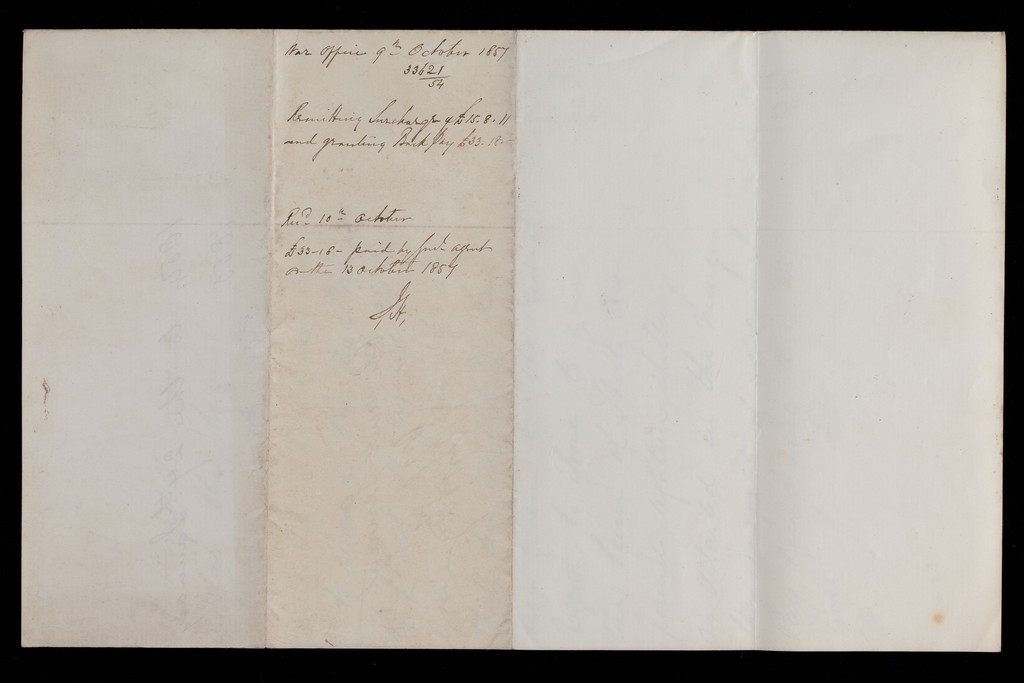 War Office 9th October 1857
33621
54
Remitting Surcharge of £15.8.11
and granting Back Pay £33.18.-
Recd 10th October
£33-18- paid by agent
on the 13 October 1857